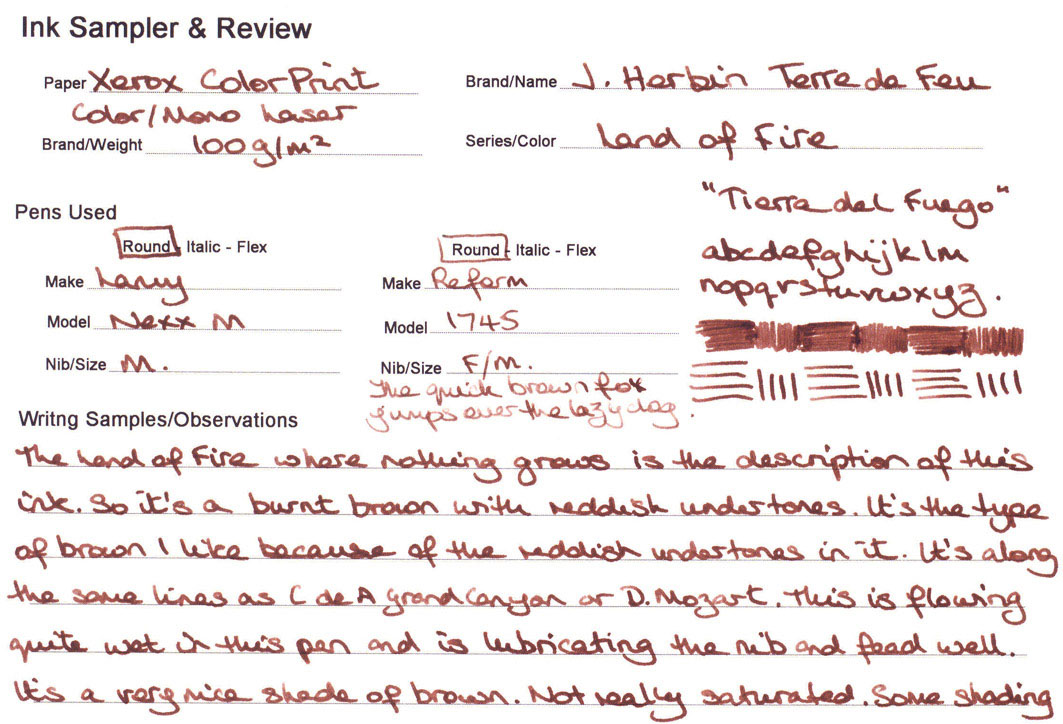 Ink Sampler & Review
Paper Xerox ColorPrint
Color/Mono Laser
Brand/Weight 100g/m²
Brand/Name J. Herbin Terre de Feu
Series/Color Land of Fire
"Tierra del Fuego"
abcdefghijklm
nopqrstuvwxyz.
Pens Used
Round - Italic - Flex
Make Lamy
Model Nexx M
Nib/Size M.
Round - Italic - Flex
Make Reform
Model 1745
Nib/Size F/M.
The quick brown fox
jumps over the lazy dog.
Writng Samples/Observations
The Land of Fire where nothing grows is the description of this
ink. So it's a burnt brown with reddish undertones. It's the type
of brown I like because of the reddish undertones in it. It's along
the same lines as C de A Grand Canyon or D. Mozart. This is flowing
quite wet in this pen and is lubricating the nib and feed well.
It's a very nice shade of brown. Not really saturated. Some shading